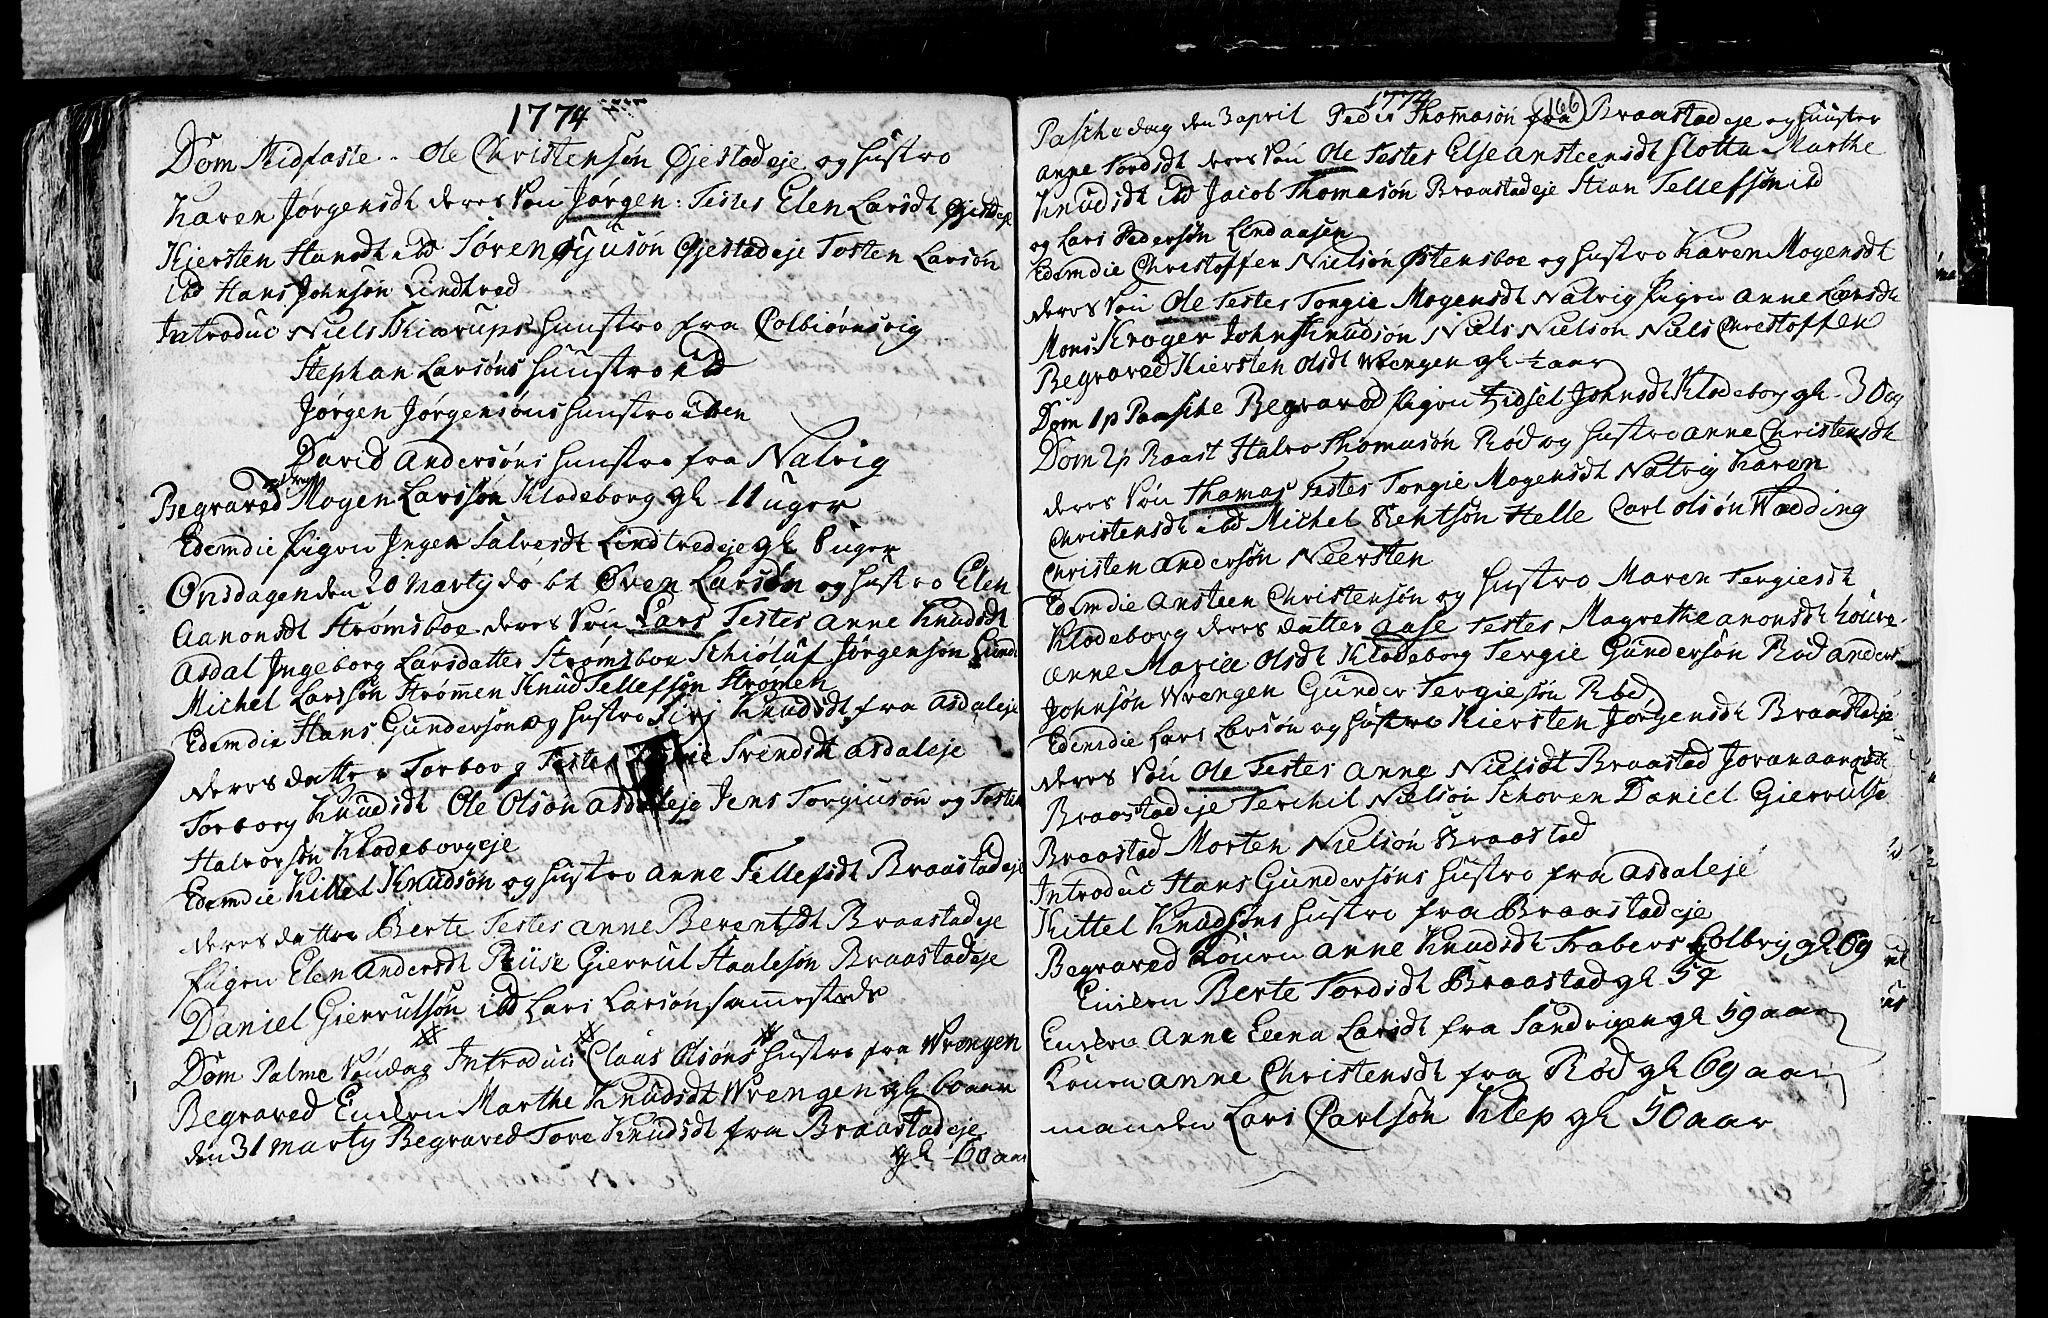 1774
Dom Midfaste. Ole Christensøn Øjestadeje og hustro
Karen Jørgensdt deres Søn Jørgen: Testes Elen Larsdt Øjestdeje
Kiersten Hansdt ibd Søren Øjestadeje Tosten Larsøn
ibd Hans Johnsøn Lindtved
Introduc Niels Skiærups Huustro fra Colbiørnsvig
Stephan Larsøns Huustro ibd
Jørgen Jørgensøns Huustro ibden
David Andersøns Huustro fra Natvig
Begraved Mogen Larssøn Klodeborg gl 11 uger
Edemdie Pigen Ingen Salvesdt Lindtvedeje gl 8 uger
Onsdagen den 20 Marty døbt Øven Larsøn og hustro Elen
Aanonsdt Strømsboe deres Søn Lars Testes Anne Knudsdt
Asdal Ingeborg Larsdatter Strømsboe Schiøluf Jørgensøn
Michel Larssøn Strømmen Knud Tellefsøn Strømen
Edemdie Hans Gundersøn og hustro Sirj Knudsdt fra Asdaleje
deres datter Torborg Testes Svendsdt Asdaleje
Torborg Knudsdt Ole Olsøn Asdaleje Jens Torgiusøn og Tosten
Halvorsøn Klodeborgeje
Edemdie Kittel Knudsøn og hustro Anne Tellefsdt Braastadeje
deres datter Berte Testes Anne Berentsdt Braastadeje
Pigen Elen Andersdt Riise Gierrul Staalesøn Braastadeje
Daniel Gierrulsøn ibd Lars Larsøn sammesteds
Dom Palme Søndag Introduc Claus Olsøns Hustro fra Vrengen
Begraved Enken Marthe Knudsdt Wrengen gl 60 aar
den 31 Marty Begraved Tore Knudsdt fra Braastadeje
gl 60 aar
1774
166
Paschedag den 3 april Peder Thomasøn fra Braastadeje og Huustro
Anne Tordsdt deres Søn Ole Testes Else Ansteensdt Slotta Marthe
Knudsdt ibd Jacob Thomasøn Braastadeje Stian Tellefsøn ibd
og Lars Pedersøn Lindaasen
Edemdie Christoffer Nielsøn Østensboe og hustro Karen Mogensdt
deres Søn Ole Testes Torgie Mogensdt Natvig Pigen Anne Larsdt
Mons Krøger John Knudsøn Niels Nielsøn Niels Christoffer
Begraved Kiersten Olsdt Wrengen gl ½ aar
Dom 1 p Paasche Begraved Pigen Zidsel Johnsdt Klodeborg gl 3 Dag
Dom 2 p Paast Halvo Thomasøn Rød og hustro Anne Christensdt
deres Søn Thomas Testes Torgie Mogensdt Natvig Karen
Christensdt ibd Michel Bentsøn Helle Carl Olsøn Wædding
Christen Andersøn Neersten
Edemdie Ansteen Christensøn og hustro Maren Tergiesdt
Klodeborg deres datter Aase Testes Magrethe Anonsdt
Anne Marie Olsdt Klodeborg Tergie Gundersøn Rød Anders
Johnsøn Wrengen Gunder Tergiesøn Røed
Edemdie Lars Larsøn og hustro Kiersten Jørgensdt Braastadeje
deres Søn Ole Testes Anne Nielsdt Braastad Joran Aanonsdt
Braastadeje Terchil Nielsøn Schoven Daniel Gierrulsø
Braastad Morten Nielsøn Braastad
Introduc Hans Gundersøns Hustro fra Asdaleje
Kittel Knudsøns Hustro fra Braastadeje
Begraved Konen Anne Knudsdt Trabers Holbrig gl 69
Enken Berte Tordsdt Braastad gl 59
Enken Anne Elena Larsdt fra Sandvigen gl 59 aar
Konen Anne Christensdt fra Rød gl 69 aar
manden Lars Carlsøn Klep gl 50 aar